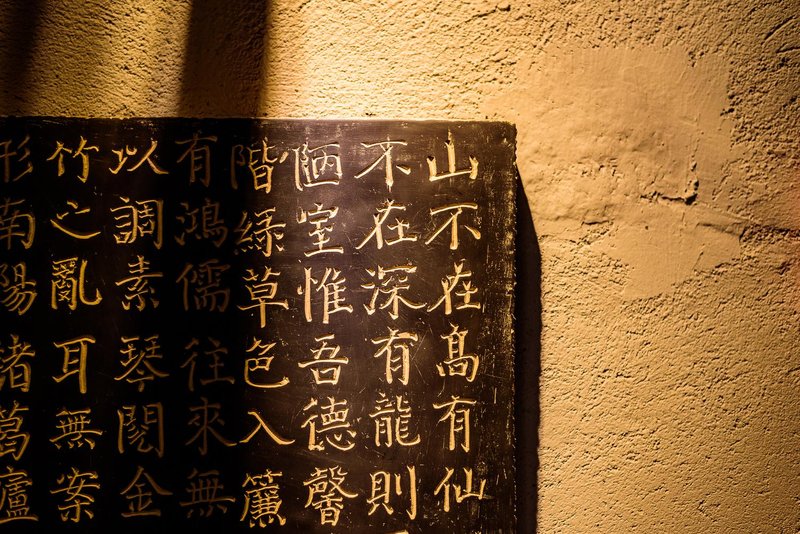 山不在高有仙
不在深有龍則
陋室惟吾德馨
階緑草色入簾
有鴻儒往来無
以調素琴閱金
竹之亂耳無案
形南陽諸葛廬